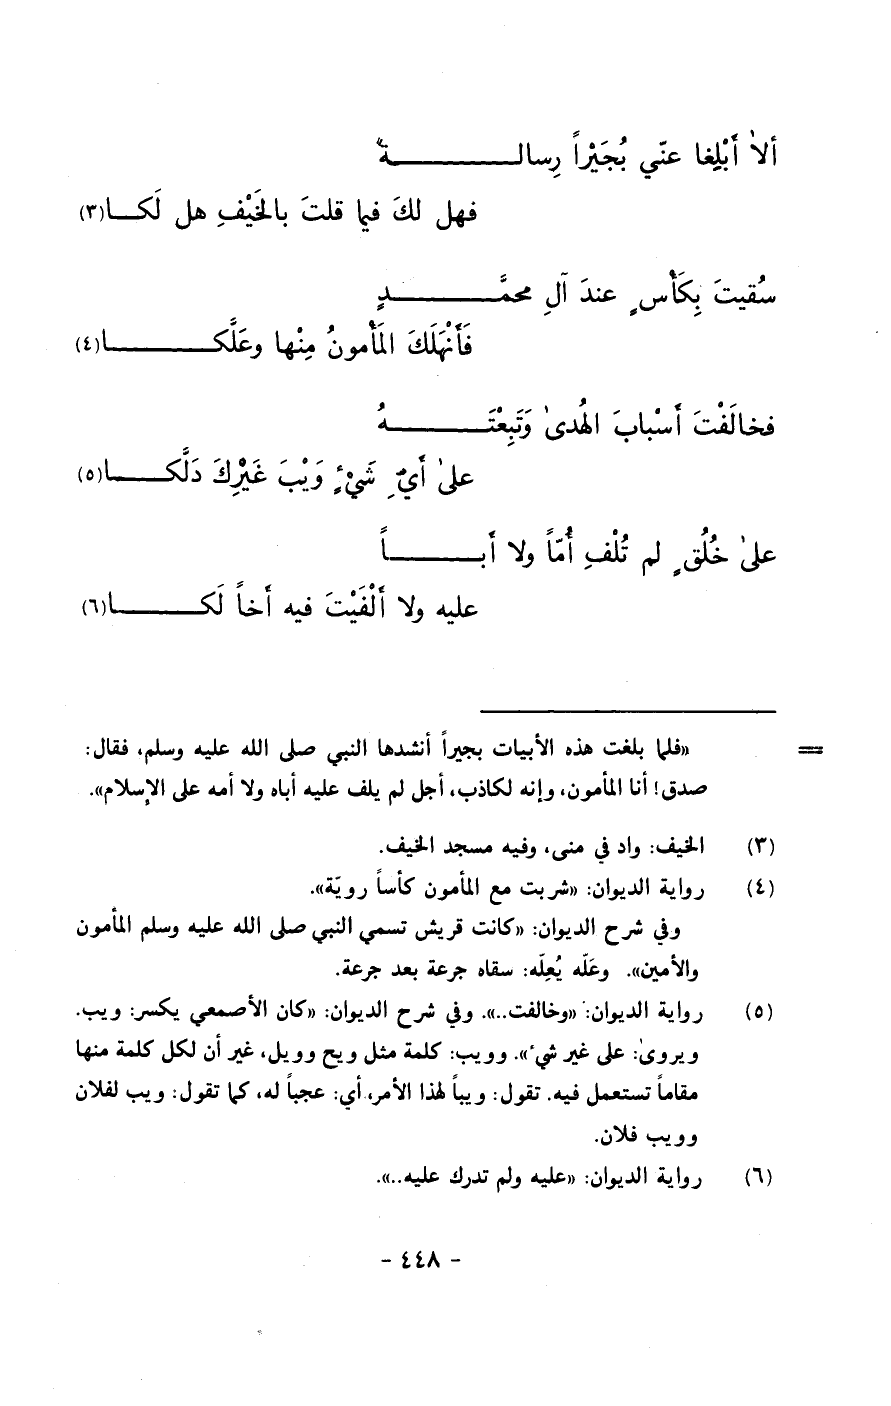 ألا أَبْلِغا عنّي بُجَيْراً رِسالـــــــــــةً
فهل لكَ فيما قلتَ بالخَيْفِ هل لَكـــا(٣)
سُقيتَ بِكَأْسٍ عندَ آلِ محمَّــــــــــدٍ
فَأَنْهَلَكَ المَأْمونُ مِنْها وعَلَّكـــــــــــا(٤)
فخالَفْتَ أَسْبابَ الهُدىٰ وَتَبِعْتَــــــــــهُ
علىٰ أَيِّ شَيْءٍ وَيْبَ غَيْرِكَ دَلَّكــــــا(٥)
علىٰ خُلُقٍ لم تُلْفِ أُمّاً ولا أَبــــــــــاً
عليه ولا أَلْفَيْتَ فيه أَخاً لَكـــــــــا(٦)
= «فلما بلغت هذه الأبيات بجيراً أنشدها النبي صلى الله عليه وسلم، فقال:
صدق! أنا المأمون، وإنه لكاذب، أجل لم يلف عليه أباه ولا أمه على الإسلام».
(٣) الخيف: واد في منى، وفيه مسجد الخيف.
(٤) رواية الديوان: «شربت مع المأمون كأساً رويّة».
وفي شرح الديوان: «كانت قريش تسمي النبي صلى الله عليه وسلم المأمون
والأمين». وعَلّه يُعِلّه: سقاه جرعة بعد جرعة.
(٥) رواية الديوان: «وخالفت..». وفي شرح الديوان: «كان الأصمعي يكسر: ويب.
ويروىٰ: على غير شيء». وويب: كلمة مثل ويح وويل، غير أن لكل كلمة منها
مقاماً تستعمل فيه. تقول: ويباً لهذا الأمر، أي: عجباً له، كما تقول: ويب لفلان
وويب فلان.
(٦) رواية الديوان: «عليه ولم تدرك عليه..».
- ٤٤٨ -